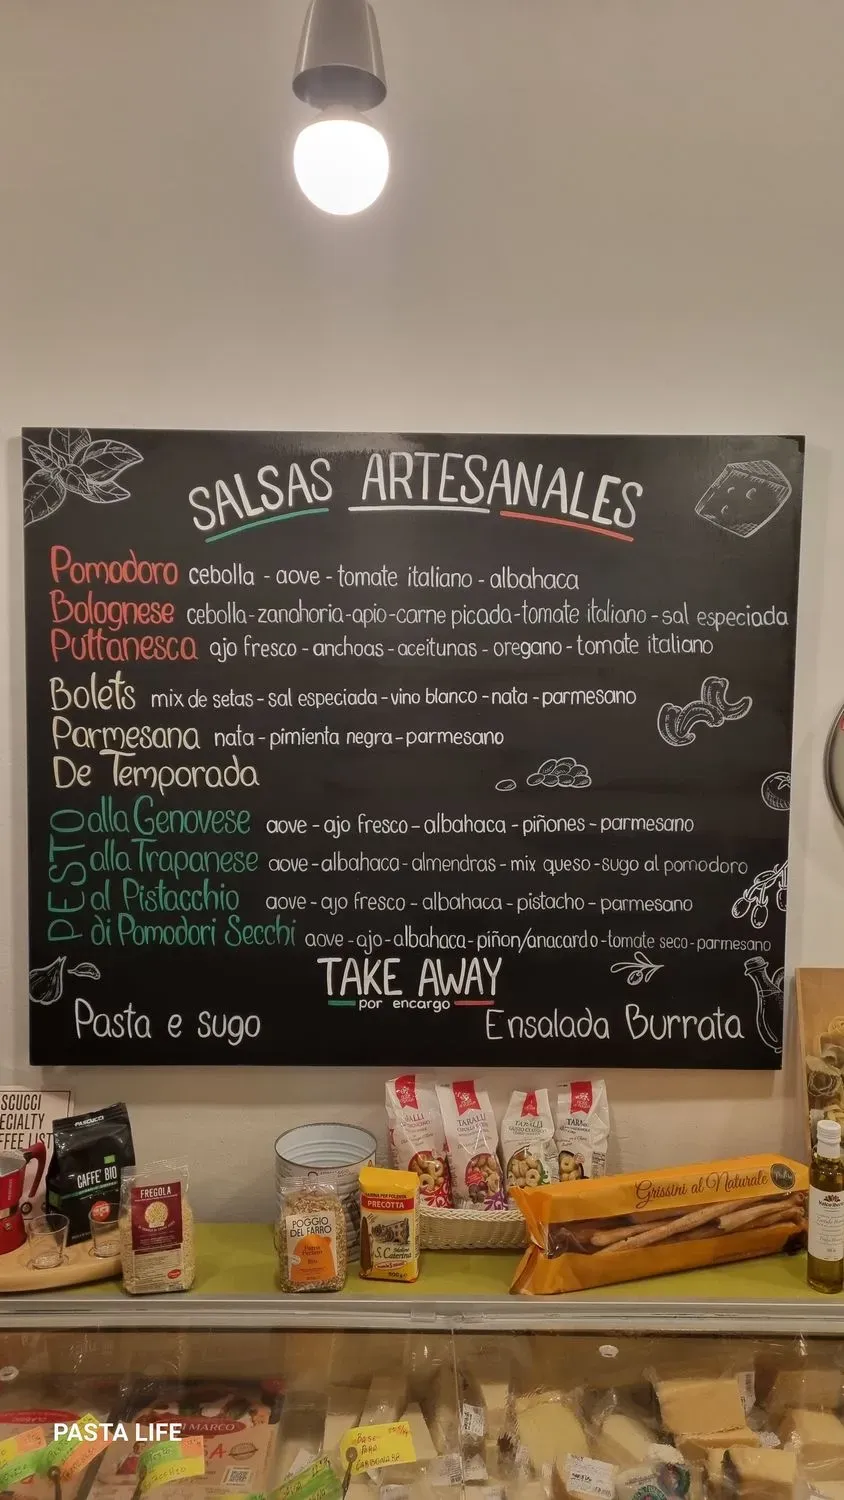 SALSAS ARTESANALES
Pomodoro cebolla - aove - tomate italiano - albahaca
Bolognese cebolla-zanahoria-apio-carne picada-tomate italiano - sal especiada
Puttanesca ajo fresco - anchoas - aceitunas - oregano - tomate italiano
Bolets mix de setas - sal especiada - vino blanco - nata - parmesano
Parmesana nata - pimienta negra - parmesano
De Temporada
PESTO
alla Genovese aove - ajo fresco - albahaca - piñones - parmesano
alla Trapanese aove - albahaca - almendras - mix queso - sugo al pomodoro
al Pistacchio aove - ajo fresco - albahaca - pistacho - parmesano
di Pomodori Secchi aove - ajo - albahaca - piñon/anacardo - tomate seco - parmesano
TAKE AWAY
por encargo
Pasta e sugo
Ensalada Burrata
PASCUCCI
CAFFÈ BIO
FREGOLA
POGGIO
DEL FARRO
PRECOTTA
S. Caterina
TARALLI
TARALLI
Grissini al Naturale
MARCO
PASTA LIFE